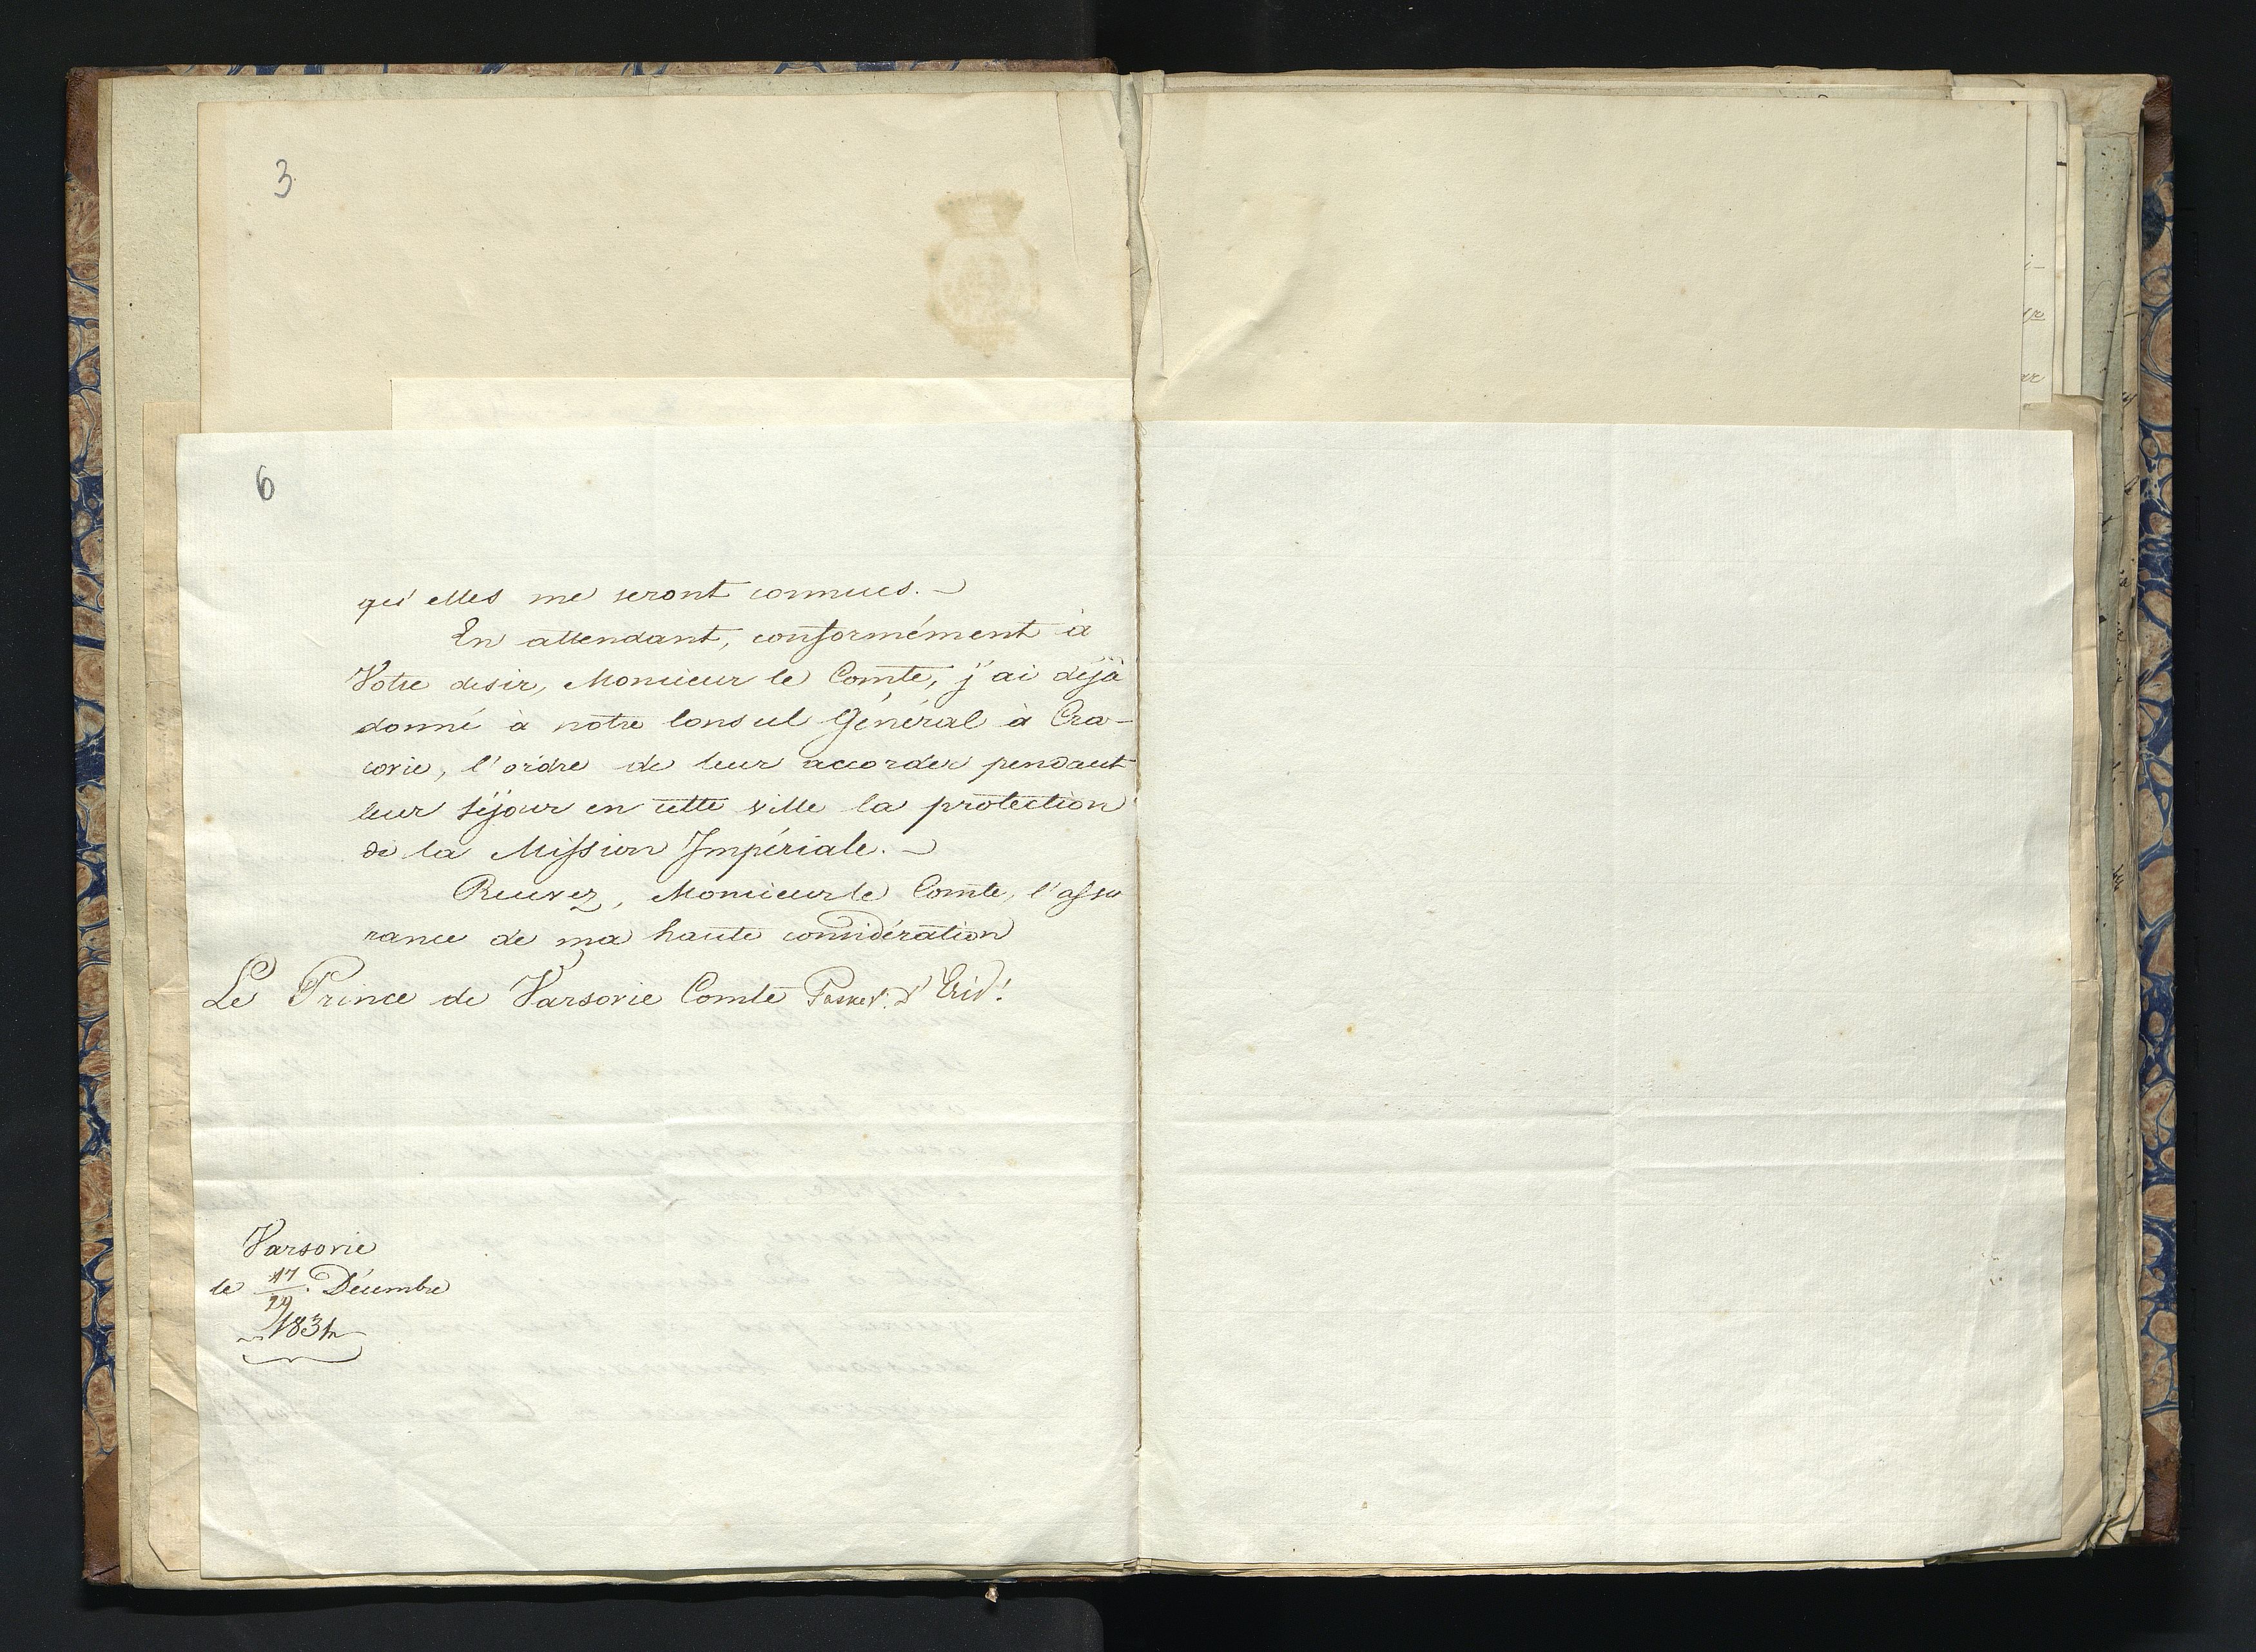 3
6
qu'elles me seront connues. —
En attendant, conformément à
Votre desir, Monsieur le Comte, j'ai déjà
donné à notre Consul Général à Cra-
covie, l'ordre de leur accorder pendant
leur séjour en cette ville la protection
de la Mission Impériale. —
Recevez, Monsieur le Comte, l'assu
rance de ma haute considération
Le Prince de Varsovie Comte Paskev. d'Eriv.
Varsovie
le 17/29 Décembre
1834